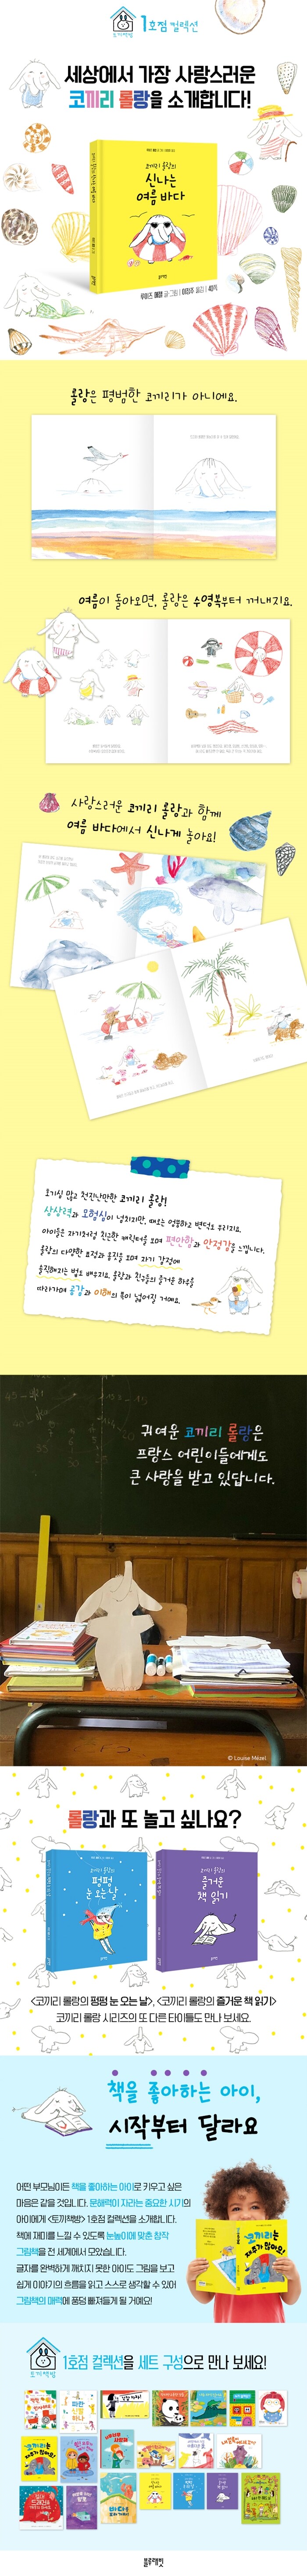 토끼책방
1호점 컬렉션
세상에서 가장 사랑스러운
코끼리 롤랑을 소개합니다!
코끼리 롤랑의
신나는
여름 바다
루이즈 메젤 글·그림 | 이정주 옮김 | 40쪽
롤랑은 평범한 코끼리가 아니에요.
여름이 돌아오면, 롤랑은 수영복부터 꺼내지요.
사랑스러운 코끼리 롤랑과 함께
여름 바다에서 신나게 놀아요!
호기심 많고 천진난만한 코끼리 롤랑!
상상력과 모험심이 넘치지만, 때로는 엉뚱하고 변덕도 부리지요.
아이들은 자기처럼 친근한 캐릭터를 보며 편안함과 안정감을 느낍니다.
롤랑의 다양한 표정과 몸짓을 보며 자기 감정에
솔직해지는 법도 배우지요. 롤랑과 친구들의 즐거운 하루를
따라가며 공감과 이해의 폭이 넓어질 거예요.
귀여운 코끼리 롤랑은
프랑스 어린이들에게도
큰 사랑을 받고 있답니다.
© Louise Mézel
롤랑과 또 놀고 싶나요?
코끼리 롤랑의
펑펑
눈 오는 날
코끼리 롤랑의
즐거운
책 읽기
<코끼리 롤랑의 펑펑 눈 오는 날>, <코끼리 롤랑의 즐거운 책 읽기>
코끼리 롤랑 시리즈의 또 다른 타이틀도 만나 보세요.
책을 좋아하는 아이,
시작부터 달라요
어떤 부모님이든 책을 좋아하는 아이로 키우고 싶은
마음은 같을 것입니다. 문해력이 자라는 중요한 시기의
아이에게 <토끼책방> 1호점 컬렉션을 소개합니다.
책에 재미를 느낄 수 있도록 눈높이에 맞춘 창작
그림책을 전 세계에서 모았습니다.
글자를 완벽하게 깨치지 못한 아이도 그림을 보고
쉽게 이야기의 흐름을 읽고 스스로 생각할 수 있어
그림책의 매력에 풍덩 빠져들게 될 거예요!
코끼리는
재주가 많아요!
토끼책방
1호점 컬렉션을 세트 구성으로 만나 보세요!
블루래빗